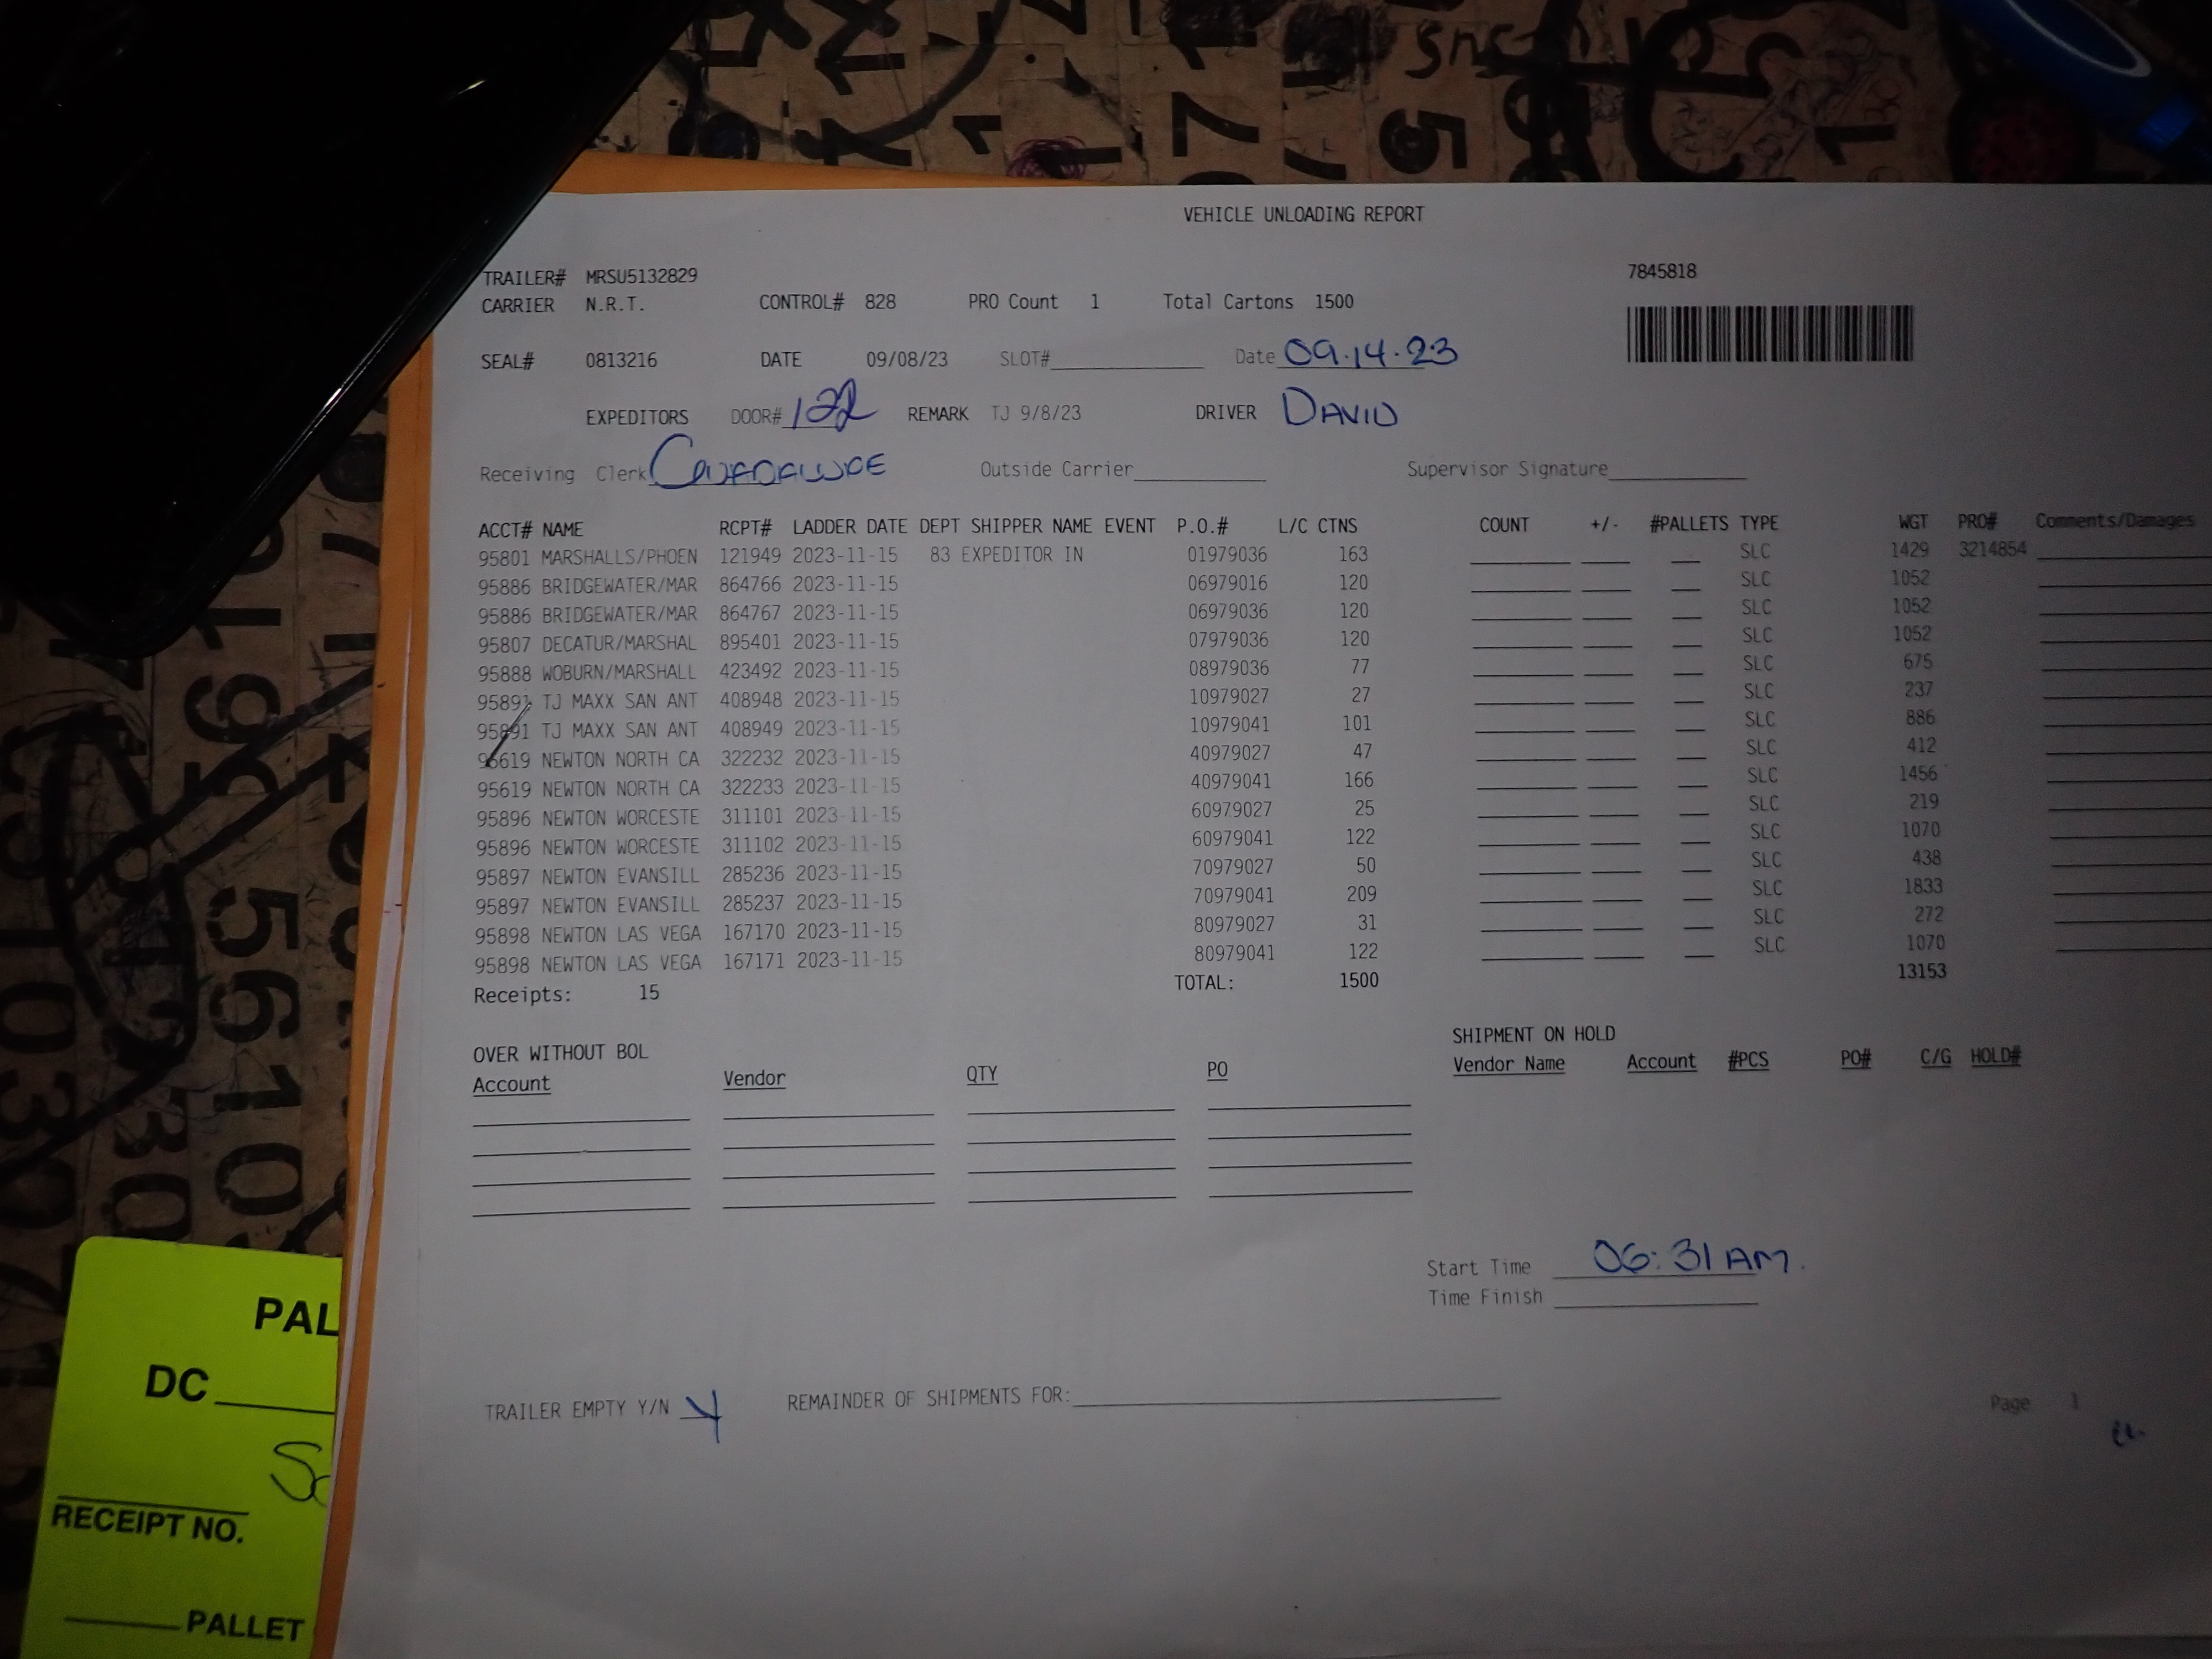 VEHICLE UNLOADING REPORT
TRAILER# MRSU5132829
7845818
CARRIER N.R.T. CONTROL# 828 PRO Count 1 Total Cartons 1500
SEAL# 0813216 DATE 09/08/23 SLOT# Date 09.14.23
EXPEDITORS DOOR# 122 REMARK TJ 9/8/23 DRIVER DAVID
Receiving Clerk Outside Carrier Supervisor Signature
ACCT# NAME RCPT# LADDER DATE DEPT SHIPPER NAME EVENT P.O.# L/C CTNS COUNT +/- #PALLETS TYPE WGT PRO# Comments/Damages
95801 MARSHALLS/PHOEN 121949 2023-11-15 83 EXPEDITOR IN 01979036 163 SLC 1429 3214854
95886 BRIDGEWATER/MAR 864766 2023-11-15 06979016 120 SLC 1052
95886 BRIDGEWATER/MAR 864767 2023-11-15 06979036 120 SLC 1052
95807 DECATUR/MARSHAL 895401 2023-11-15 07979036 120 SLC 1052
95888 WOBURN/MARSHALL 423492 2023-11-15 08979036 77 SLC 675
95891 TJ MAXX SAN ANT 408948 2023-11-15 10979027 27 SLC 237
95891 TJ MAXX SAN ANT 408949 2023-11-15 10979041 101 SLC 886
95619 NEWTON NORTH CA 322232 2023-11-15 40979027 47 SLC 412
95619 NEWTON NORTH CA 322233 2023-11-15 40979041 166 SLC 1456
95896 NEWTON WORCESTE 311101 2023-11-15 60979027 25 SLC 219
95896 NEWTON WORCESTE 311102 2023-11-15 60979041 122 SLC 1070
95897 NEWTON EVANSILL 285236 2023-11-15 70979027 50 SLC 438
95897 NEWTON EVANSILL 285237 2023-11-15 70979041 209 SLC 1833
95898 NEWTON LAS VEGA 167170 2023-11-15 80979027 31 SLC 272
95898 NEWTON LAS VEGA 167171 2023-11-15 80979041 122 SLC 1070
Receipts: 15 TOTAL: 1500 13153
OVER WITHOUT BOL SHIPMENT ON HOLD
Account Vendor QTY PO Vendor Name Account #PCS PO# C/G HOLD#
Start Time 06:31 AM.
Time Finish
TRAILER EMPTY Y/N Y REMAINDER OF SHIPMENTS FOR:
Page 1
PAL
DC
RECEIPT NO.
PALLET
56105